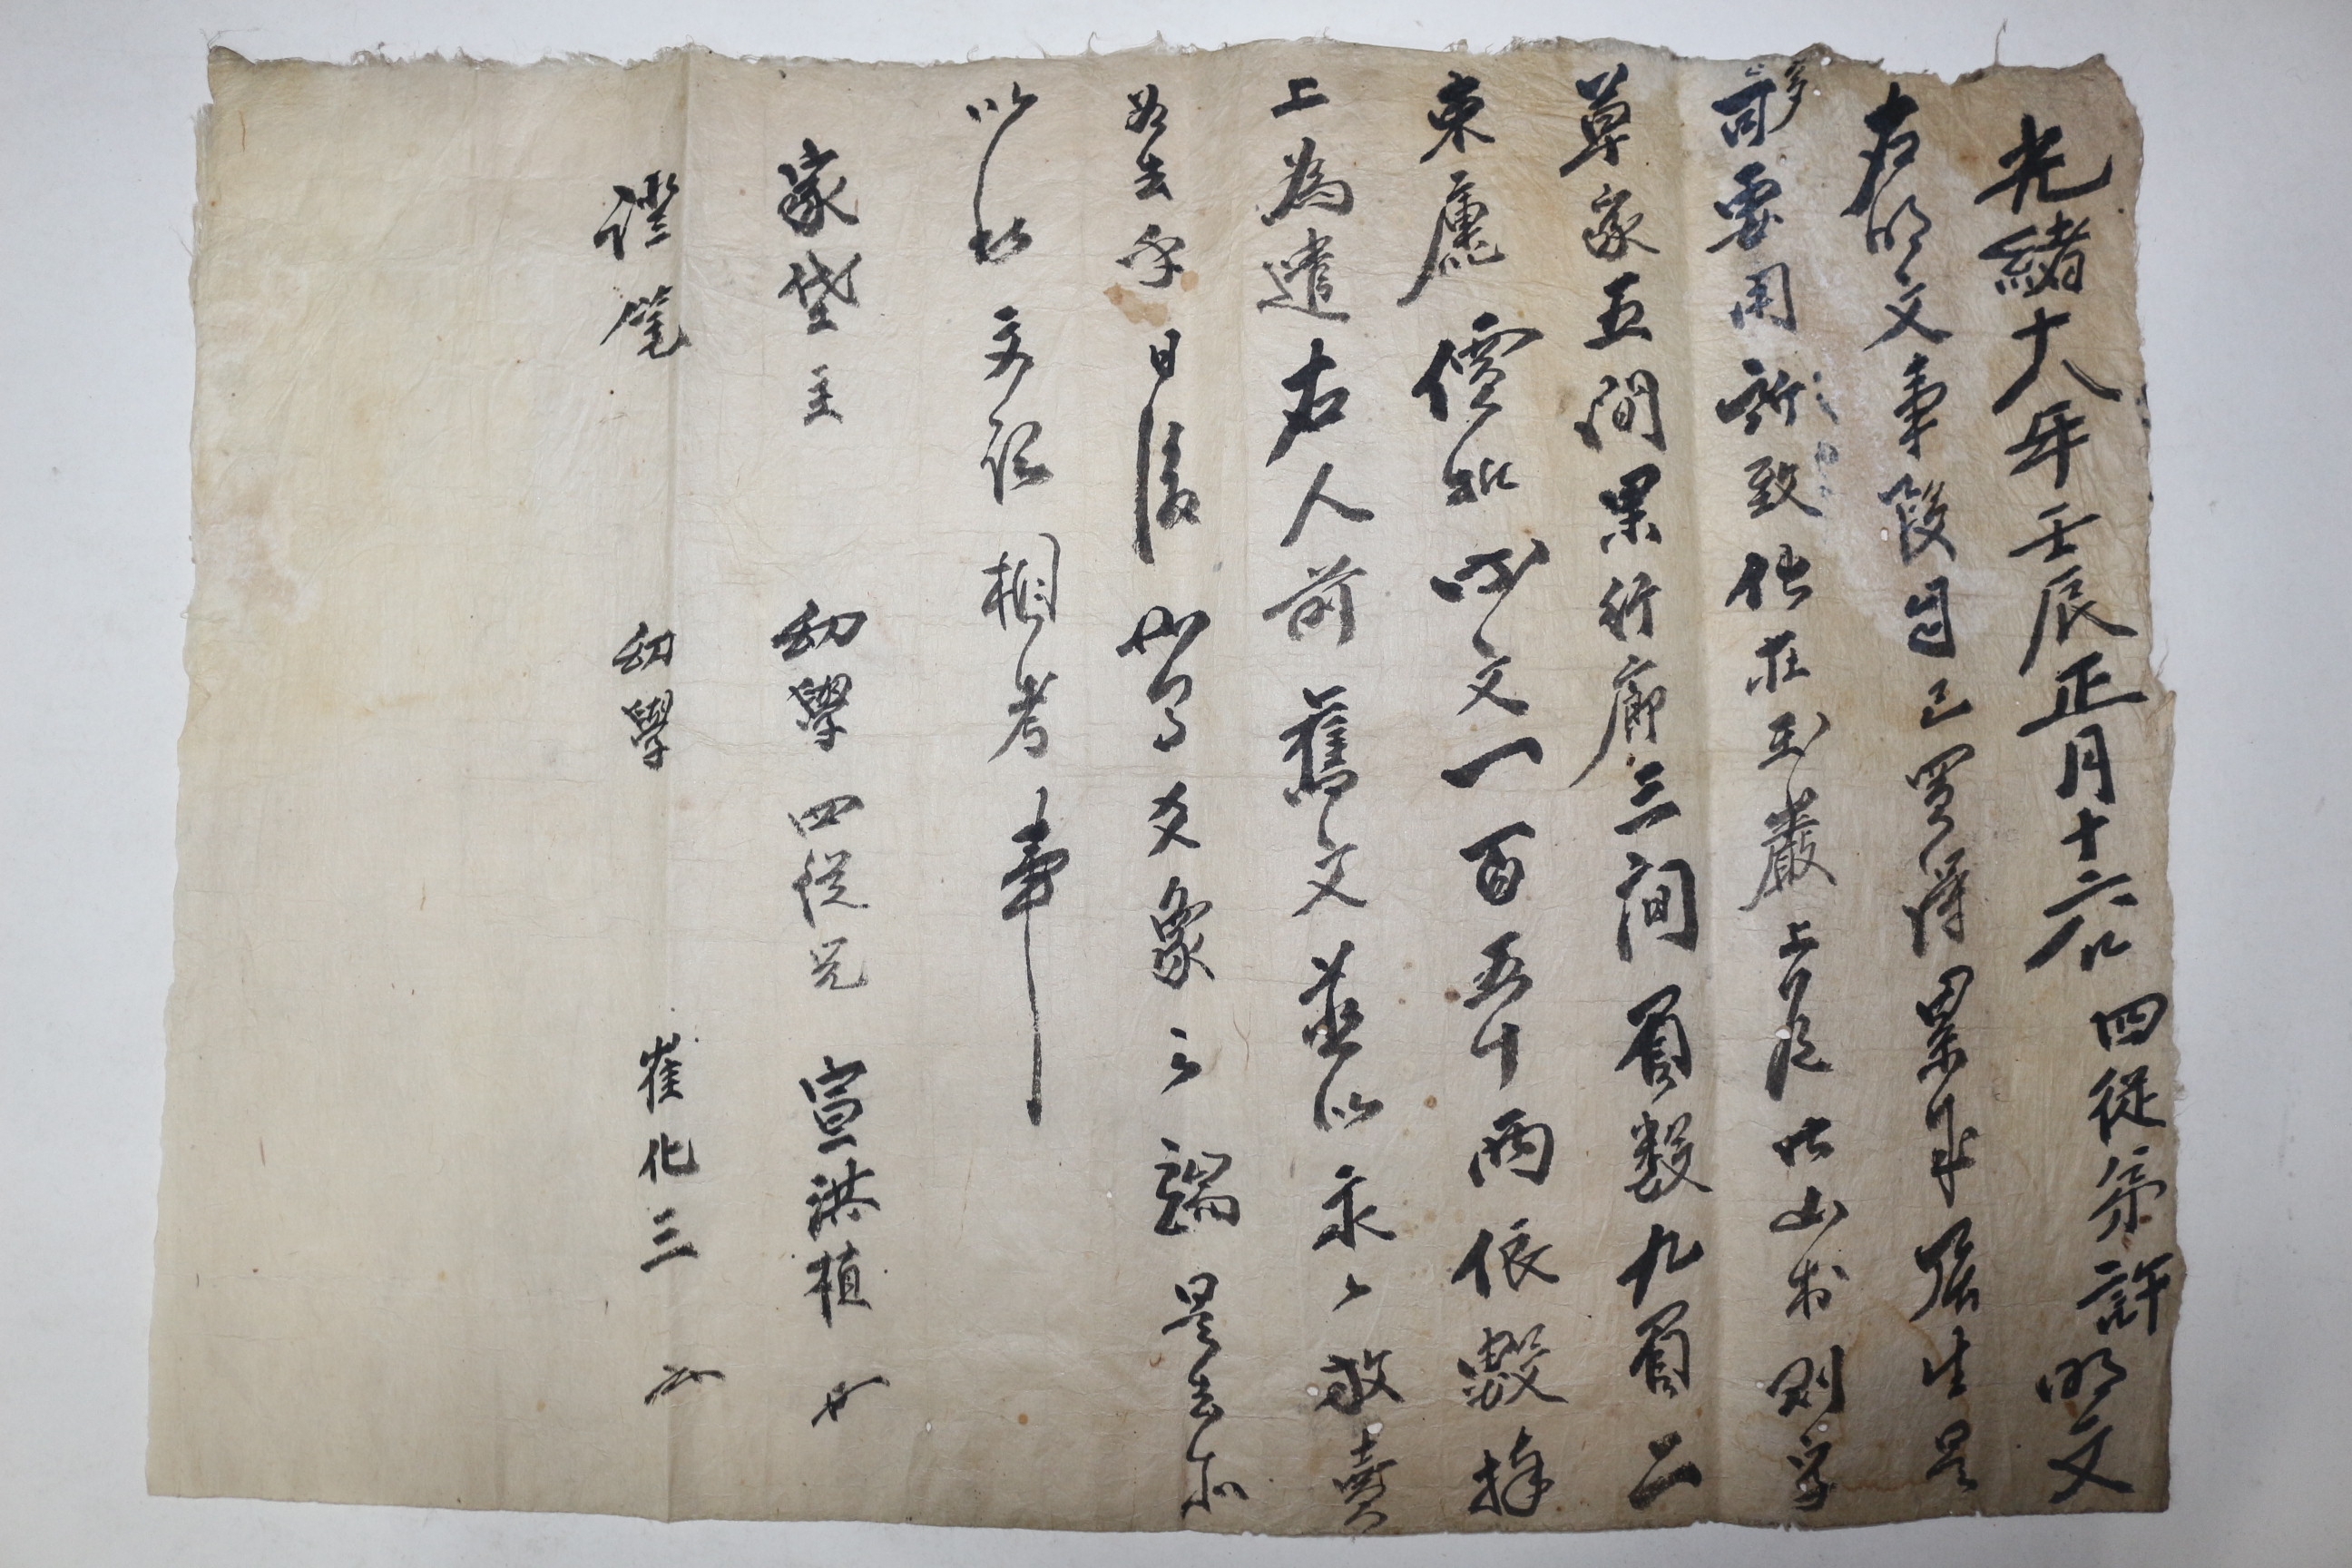 光緖十八年壬辰正月十六日 四從弟許明文
右明文事段自己買得累年居生是
多可要用所致伏在玉巖上尾 山村則字
草家五間果行廊三間負數九負二
束廤價折則文一百五十兩依數捧
上爲遣右人前舊文並以永永放賣
爲去乎日後如有爻象之端是去等
以此文記相考事
家垈主 幼學 四從兄 宣洪植
證筆 幼學 崔化三